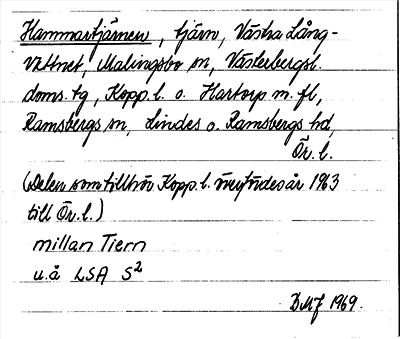 Hammartjärnen, tjärn, Västra Lång-
vattnet, Malingsbo sn, Västerbergsl.
doms.tg, Kopp.l. o. Hartorp m.fl,
Ramsbergs sn, Lindes o. Ramsbergs hd,
Ör.l.
(Delen som tillhör Kopp.l. överfördes år 1963
till Ör.l.)
millan Tiern
u.å LSA S²
DMJ 1969.